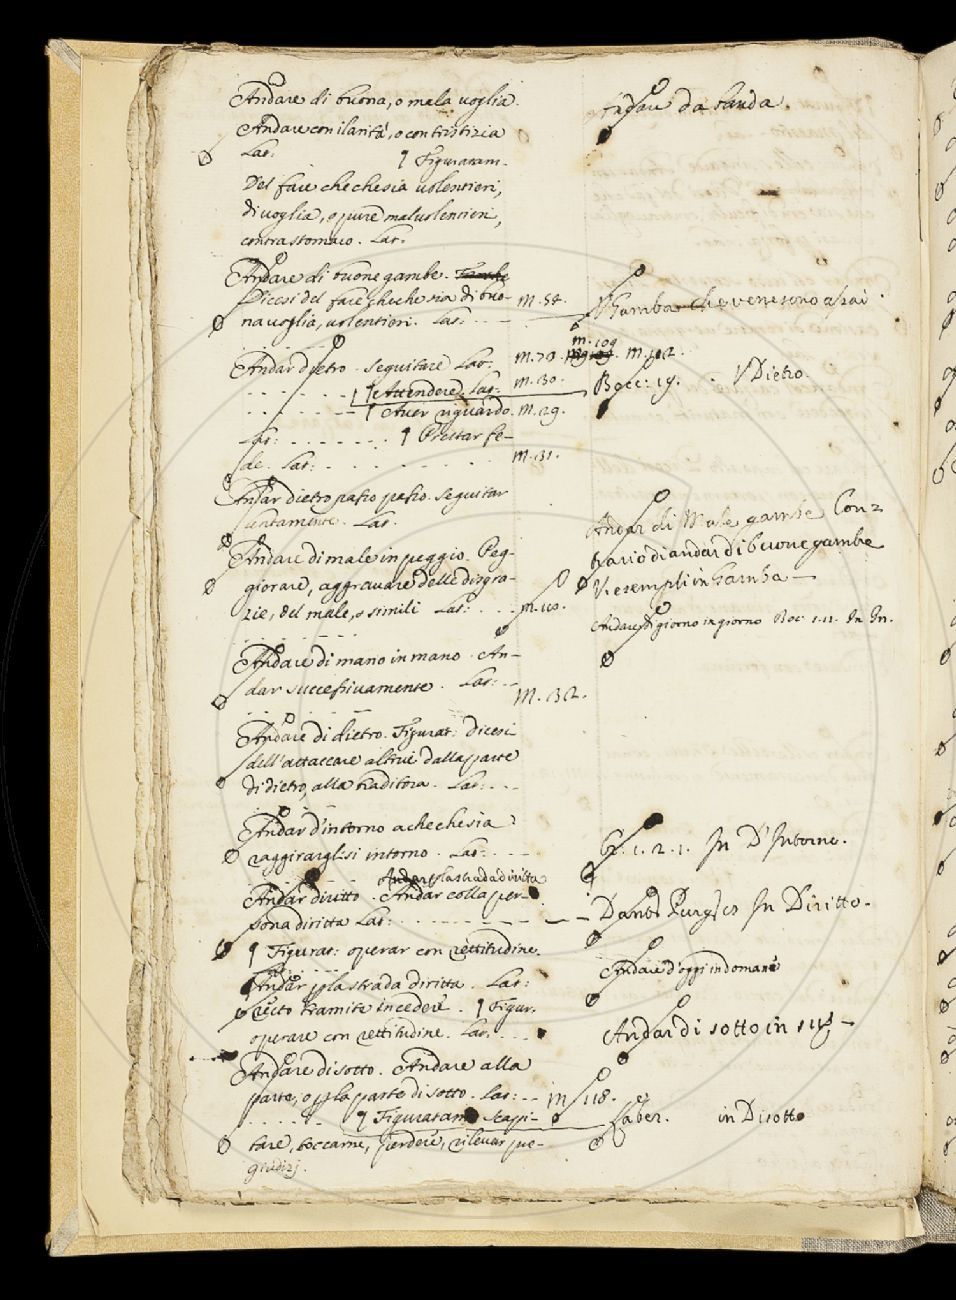 Andare di buona, o mala voglia.
Andare con ilarità, o con tristizia
Lat:                ¶ Figuratam.
Del fare chechesia volentieri,
di voglia, o pure malvolentieri,
contrastomaco. Lat.
Andare di buone gambe.
Dicesi del fare cheche sia di buo-
na voglia, volentieri. Lat: . . .
Andar dietro. Seguitare Lat.
. . . . . . ¶ Attendere Lat:
. . . . . . ¶ Aver riguardo.
Lat: . . . . . . . ¶ Prestar fe-
de. Lat: . . . . . . .
Andar dietro passo passo. Seguitar
lentamente. Lat.
Andare di male in peggio. Peg-
giorare, aggravare delle disgra-
zie, del male, o simili Lat: . . .
Andare di mano in mano. An-
dar successivamente. Lat: . .
Andare di dietro. Figurat: dicesi
dell'attaccare altrui dalla parte
di dietro, alla traditora. Lat: . . .
Andar d'intorno a chechesia
raggirarglisi intorno. Lat: . . .
Andar p la strada diritta
Andar diritto. Andar colla per-
sona diritta Lat: . . . . . . .
¶ Figurat: operar con rettitudine.
Andar p la strada diritta. Lat:
recto tramite incedere. ¶ Figur.
operare con rettitudine. Lat. . . .
Andare di sotto. Andare alla
parte, o p la parte di sotto. Lat: . .
. . . . . ¶ Figuratam Scapi-
tare, toccarne, perdere, rilevar pre-
giudizj.
m. 54.
m. 79. m. 109 m. 112.
m. 30.
m. 29.
m. 31.
m. 110.
m. 132.
m 118.
Andare da banda.
V Gamba che vene sono assai.
Bocc: 19. . V Dietro.
Andar di Male gambe Con=
trario di andar di buone gambe
V. esempli in Gamba —
Andare di giorno in giorno Boc: 1.11. In In.
1. 2. 1. In D'Intorno.
Dante Purg: In Diritto.
Andare d'oggi in domane
Andar di sotto in su —
in Disotto